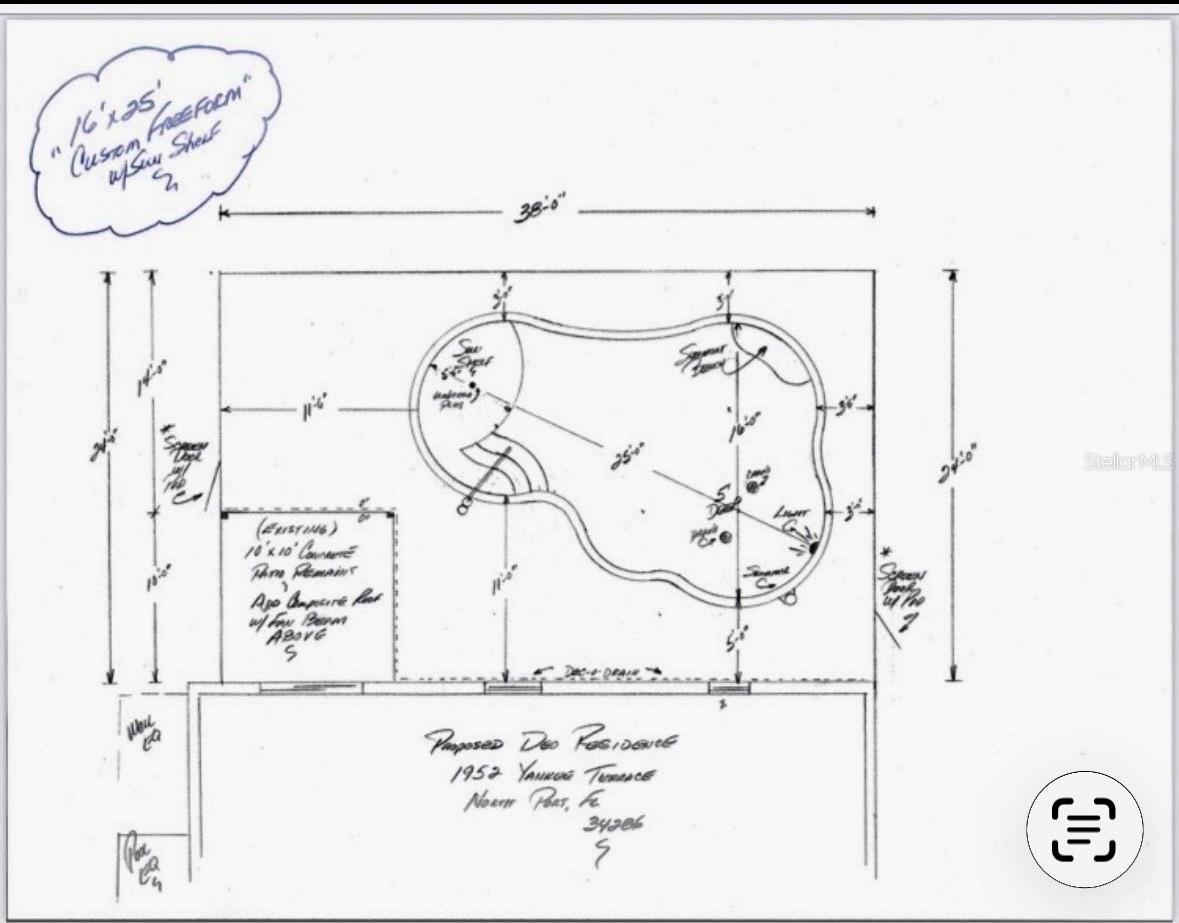 "16' x 25'
Custom Freeform"
w/ Sun Shelf
38'-0"
3'-0"
3'-0"
14'-0"
24'-0"
10'-0"
11'-6"
Sun
Shelf
25'-0"
16'-0"
3'-6"
24'-0"
* Screen
Door
w/
Pad
Drains
5'
Deep
Light
Skimmer
* Screen
Door
w/ Pad
(Existing)
10' x 10' Concrete
Patio Remains
Add Composite Roof
w/ Fan Beam
Above
11'-0"
5'-0"
Dec-O-Drain
Well
EQ
Pool
EQ
Proposed Deo Residence
1952 Yankee Terrace
North Port, FL
34286
StellarMLS